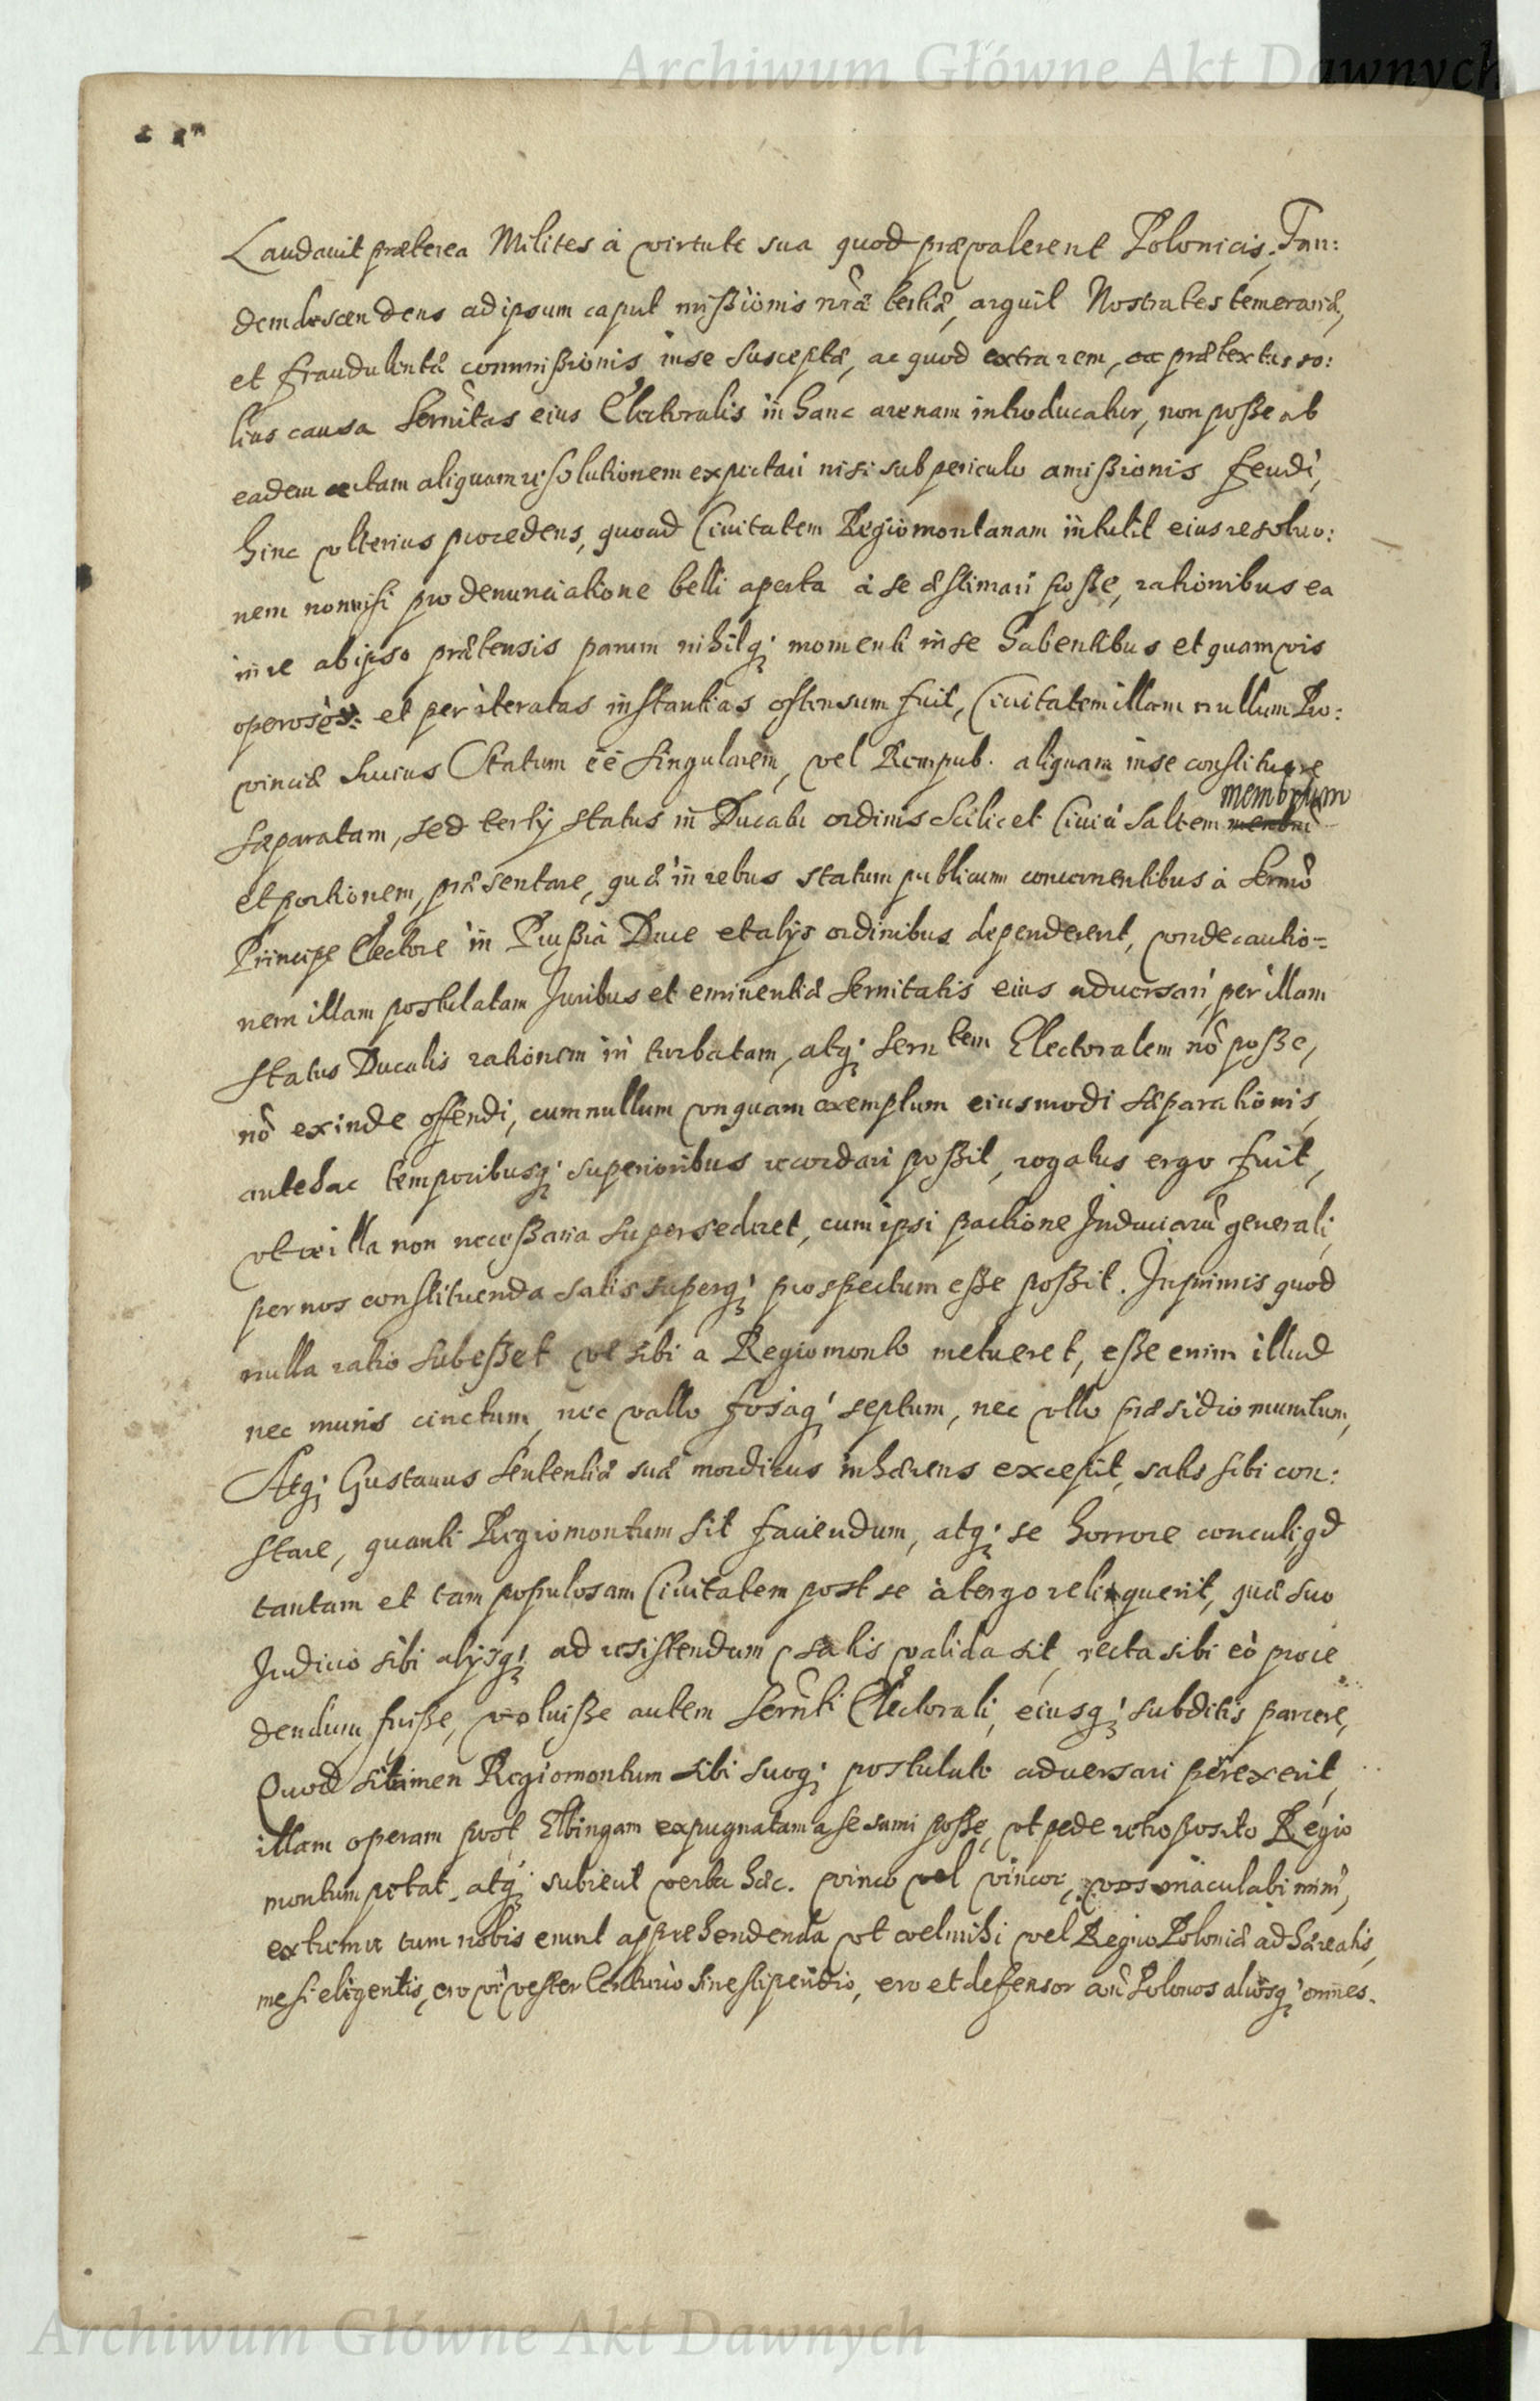 Archiwum Główne Akt Dawnych
Laudauit præterea Milites à virtute sua quod prævalerent Polonicis, Tan:
dem descendens ad ipsum caput mißionis nr̃æ tertiæ, arguit Nostrates temerariæ,
et fraudulentæ commißionis in se susceptæ, ac quod extra rem, ac prætextus so:
lius causa Sernitas eius Electoralis in hanc arenam introducatur, non poße ab
eadem certam aliquam resolutionem expectari nisi sub periculo amißionis feudi,
hinc vlterius procedens, quoad Ciuitatem Regiomontanam intulit eius resoluo:
nem nonnisi pro denunciatione belli aperta à se æstimari poße, rationibus ea
in re ab ipso prætensis parum nihilq; momenti in se habentibus et quamvis
operosè et per iteratas instantias ostensum fuit, Ciuitatem illam nullum Pro:
vinciæ huius Statum eē singularem, vel Rempub. aliquam in se constituere
sæparatam, sed tertij status in Ducatu ordinis scilicet Ciuiū saltem membrum
et portionem, præsentare, quæ in rebus statum publicum concernentibus à Sermô
Principe Electore in Prußia Duce et alijs ordinibus dependerent, vnde cautio=
nem illam postulatam Juribus et eminentiæ Sernitatis eius aduersari, per illam
status Ducalis rationem in turbatam, atq; Sern tem Electoralem nô poße,
nô exinde offendi, cum nullum vnquam exemplum eiusmodi sæparationis
antehac temporibusq; superioribus recordari poßit, rogatus ergo fuit,
vt ex illa non neceßaria supersederet, cum ipsi pactione Induciarū generali,
per nos constituenda satis superq; prospectum eße poßit. Inprimis quod
nulla ratio subeßet vt sibi a Regiomonto metueret, eße enim illud
nec muris cinctum, nec vallo fosaq; septum, nec vllo præsidio munitum,
Atq; Gustauus sententiæ suæ mordicus inhærens excepit, satis sibi con:
stare, quanti Regiomontum sit faciendum, atq; se horrore concuti, qd
tantam et tam populosam Ciuitatem post se à tergo relinquerit, quæ suo
Judicio sibi alijsq; ad resistendum satis valida sit, recta sibi eò proce
dendum fuiße, voluiße autem Sernti Electorali, eiusq; subditis parcere,
Quod si tamen Regiomontum sibi suoq; postulato aduersari perexerit,
illam operam post Elbingam expugnatam a se sumi poße, vt pede retroposito Regio
montum petat, atq; subiecit verba hæc. vinco vel vincor, vos maculabimini,
extrema tum nobis erunt apprehendenda vt vel mihi vel Regno Poloniæ adhæreatis,
me si eligentis, ero vester Centurio sine stipendio, ero et defensor Polonos aliosq; omnes.
Archiwum Główne Akt Dawnych